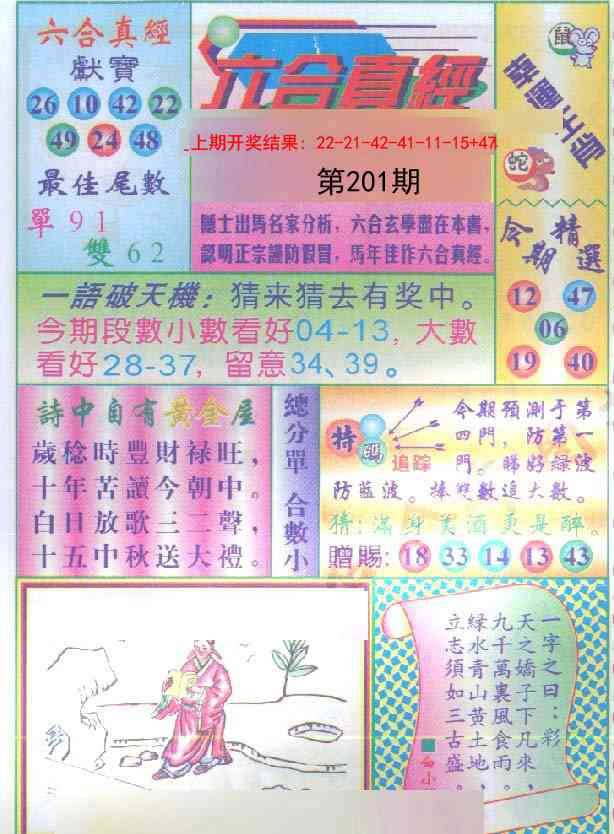 六合真經
獻寶
26 10 42 22
49 24 48
最佳尾數
單91
雙62
六合真經
上期开奖结果：22-21-42-41-11-15+47
第201期
隱士出馬名家分析，六合玄學盡在本書，
認明正宗謹防假冒，馬年佳作六合真經。
鼠
蛇
今期精選
12 47
06
19 40
一語破天機：猜来猜去有奖中。
今期段數小數看好04-13，大數
看好28-37，留意34、39。
詩中自有黃金屋
歲稔時豐財禄旺，
十年苦讀今朝中。
白日放歌三二聲，
十五中秋送大禮。
總分單 合數小
特碼
追踪
今期預測于第
四門，防第一
門。睇好綠波
防藍波。捧雙數追大數。
猜：滿身美酒更是醉。
贈賜：18 33 14 13 43
一字之曰：彩
天之嬌子下凡來，
九千萬裏風食雨，
綠水青山黃土地，
立志須如三古盛。